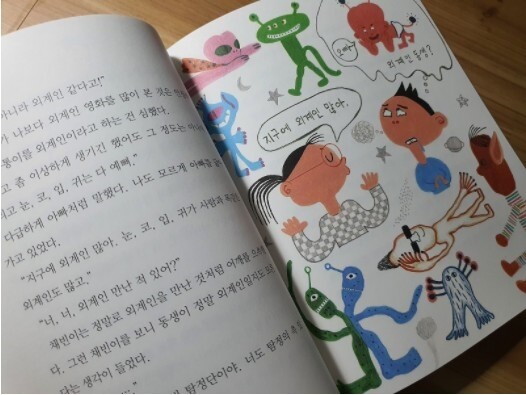 아니라 외계인 같다고!"
가 나보다 외계인 영화를 많이 본 것은
통이를 외계인이라고 하는 건 심했다.
고 좀 이상하게 생기긴 했어도 그 정도는
리고 눈, 코, 입, 귀는 다 예뻐."
다급하게 아빠처럼 말했다. 나도 모르게 아빠를
가고 있었다.
"지구에 외계인 많아. 눈, 코, 입, 귀가 사람과
외계인도 많고."
"너, 너, 외계인 만난 적 있어?"
채빈이는 정말로 외계인을 만난 것처럼 어깨를
다. 그런 채빈이를 보니 동생이 정말 외계인일지도
다는 생각이 들었다.
탐정단이야. 너도 탐정의
오빠~
외계인 동생?
지구에 외계인 많아.